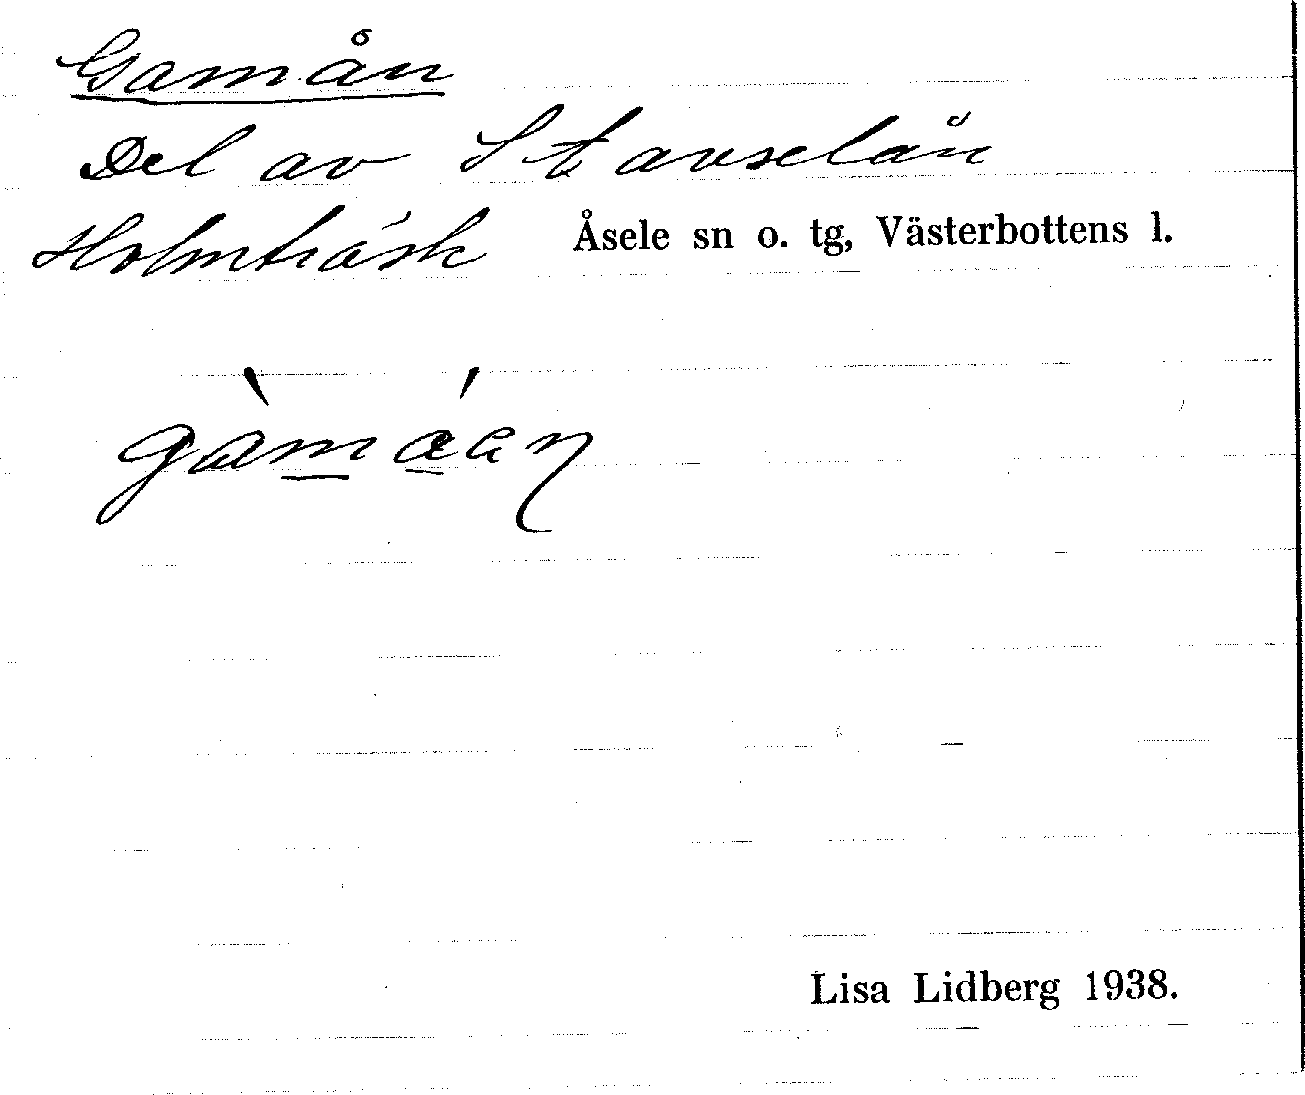 Gamån
Del av Stavselån
Holmträsk Åsele sn o. tg, Västerbottens l.
Lisa Lidberg 1938.